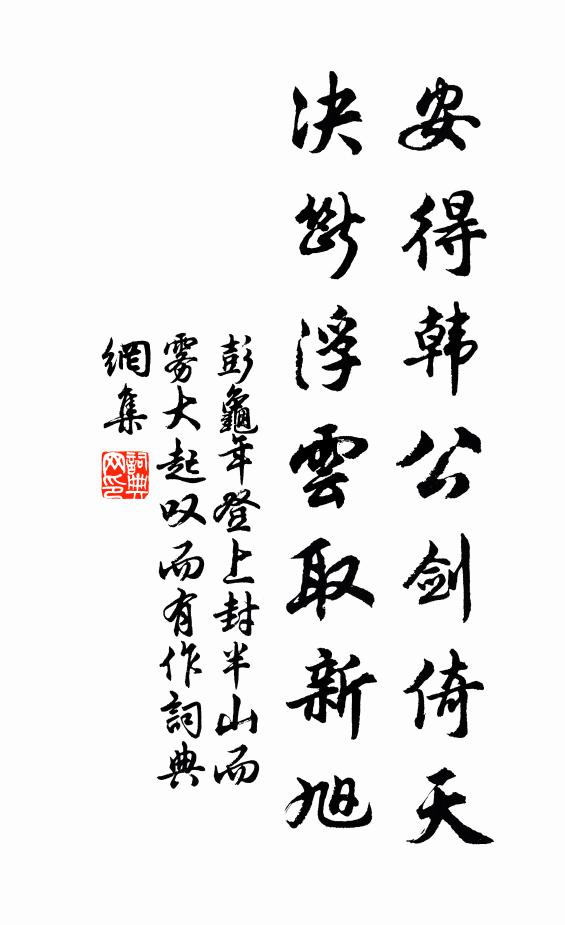 安得韩公剑倚天
决断浮雲取新旭
彭龜年登上封半山而
雾大起叹而有作詞典
網集
詞典
网印